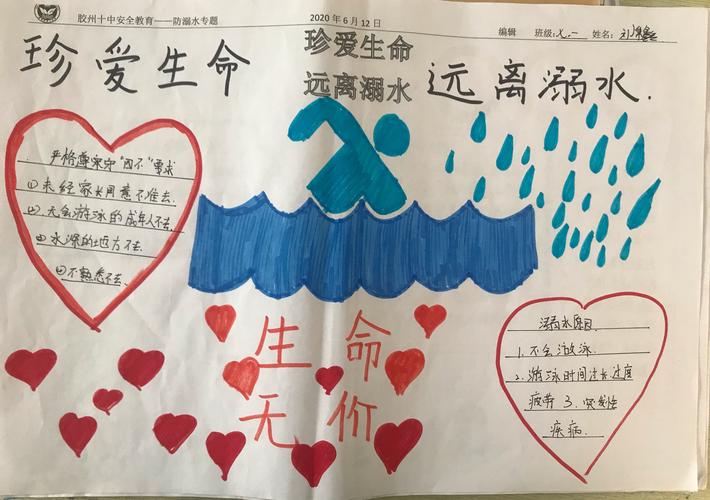 胶州十中安全教育——防溺水专题
2020年6月12日
编辑 班级:七.一 姓名:
珍爱生命
珍爱生命
远离溺水
远离溺水.
严格遵守"四不"要求
①未经家长同意不准去.
②.无会游泳的成年人不去.
③水深的地方不去.
④不熟悉不去.
生命
无价
溺水原因
1.不会游泳.
2.游泳时间过长.过度
疲劳 3.突发性
疾病.